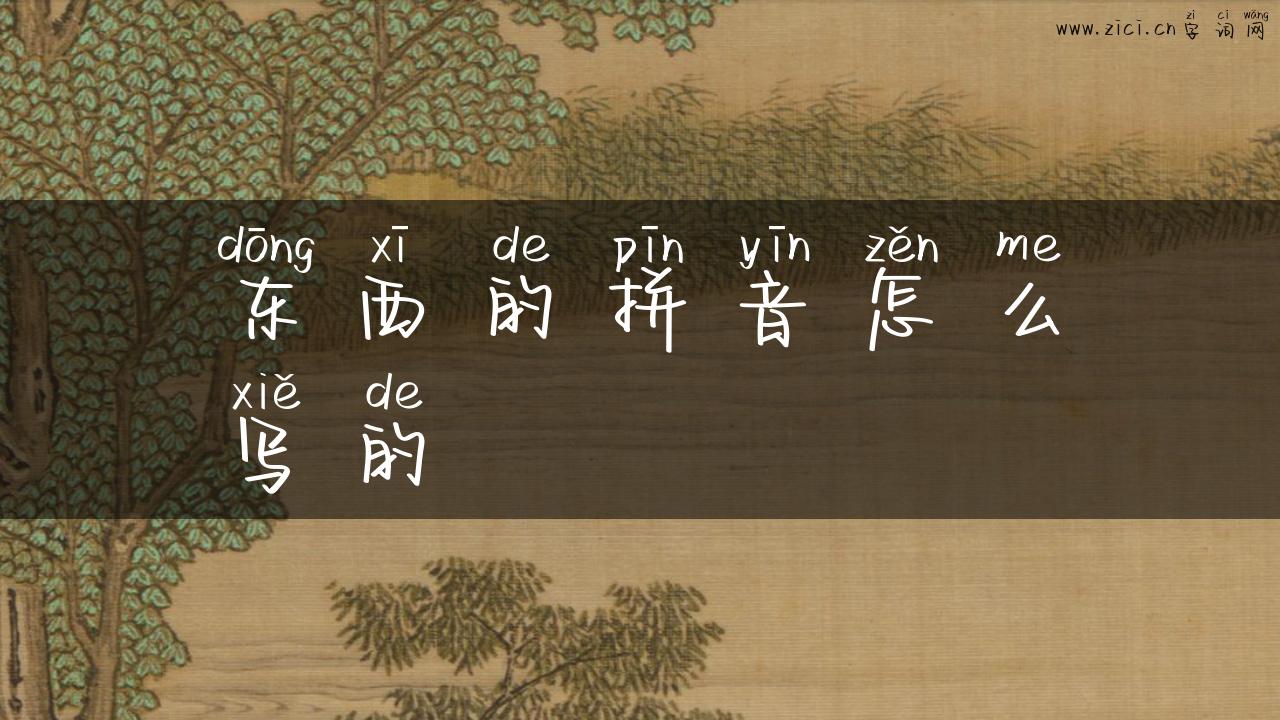 zì cí wǎng
www.zici.cn 字词网
dōng xī de pīn yīn zěn me
东西的拼音怎么
xiě de
写的